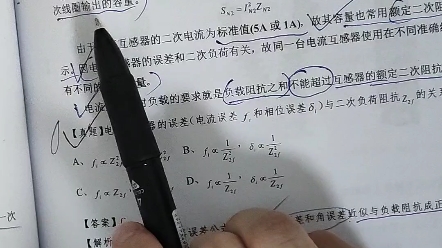 次线圈输出的容量。 S_{N2} = I²_{N2}Z_{N2}
由于 互感器的二次电流为标准值(5A 或 1A),故其容量也常用额定二次阻
示 感器的误差和二次负荷有关,故同一台电流互感器使用在不同准确
有不同的 量。
电流 对负载的要求就是负载阻抗之和不能超过互感器的额定二次阻抗
【真题】电 器的误差(电流误差 f_i 和相位误差 δ_i)与二次负荷阻抗 Z_{2f} 的关
A、f_i∝Z²_{2f} B、f_i∝1/Z²_{2f},δ_i∝1/Z²_{2f}
C、f_i∝Z_{2f} D、f_i∝1/Z_{2f},δ_i∝1/Z_{2f}
【答案】C
【解析 误差 差和角误差近似与负载阻抗成正
一次